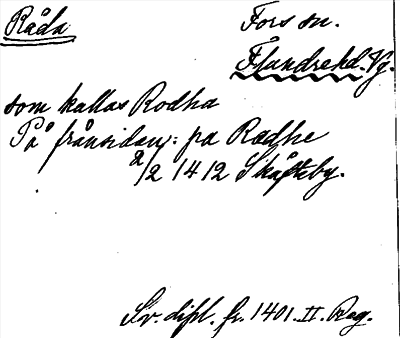 Råda
Fors sn.
Flundrehd. Vg.
som kallas Rodha
På frånsidan: pa Rædhe
2/2 1412 Skåftby.
Sv. dipl. fr. 1401. II. Reg.